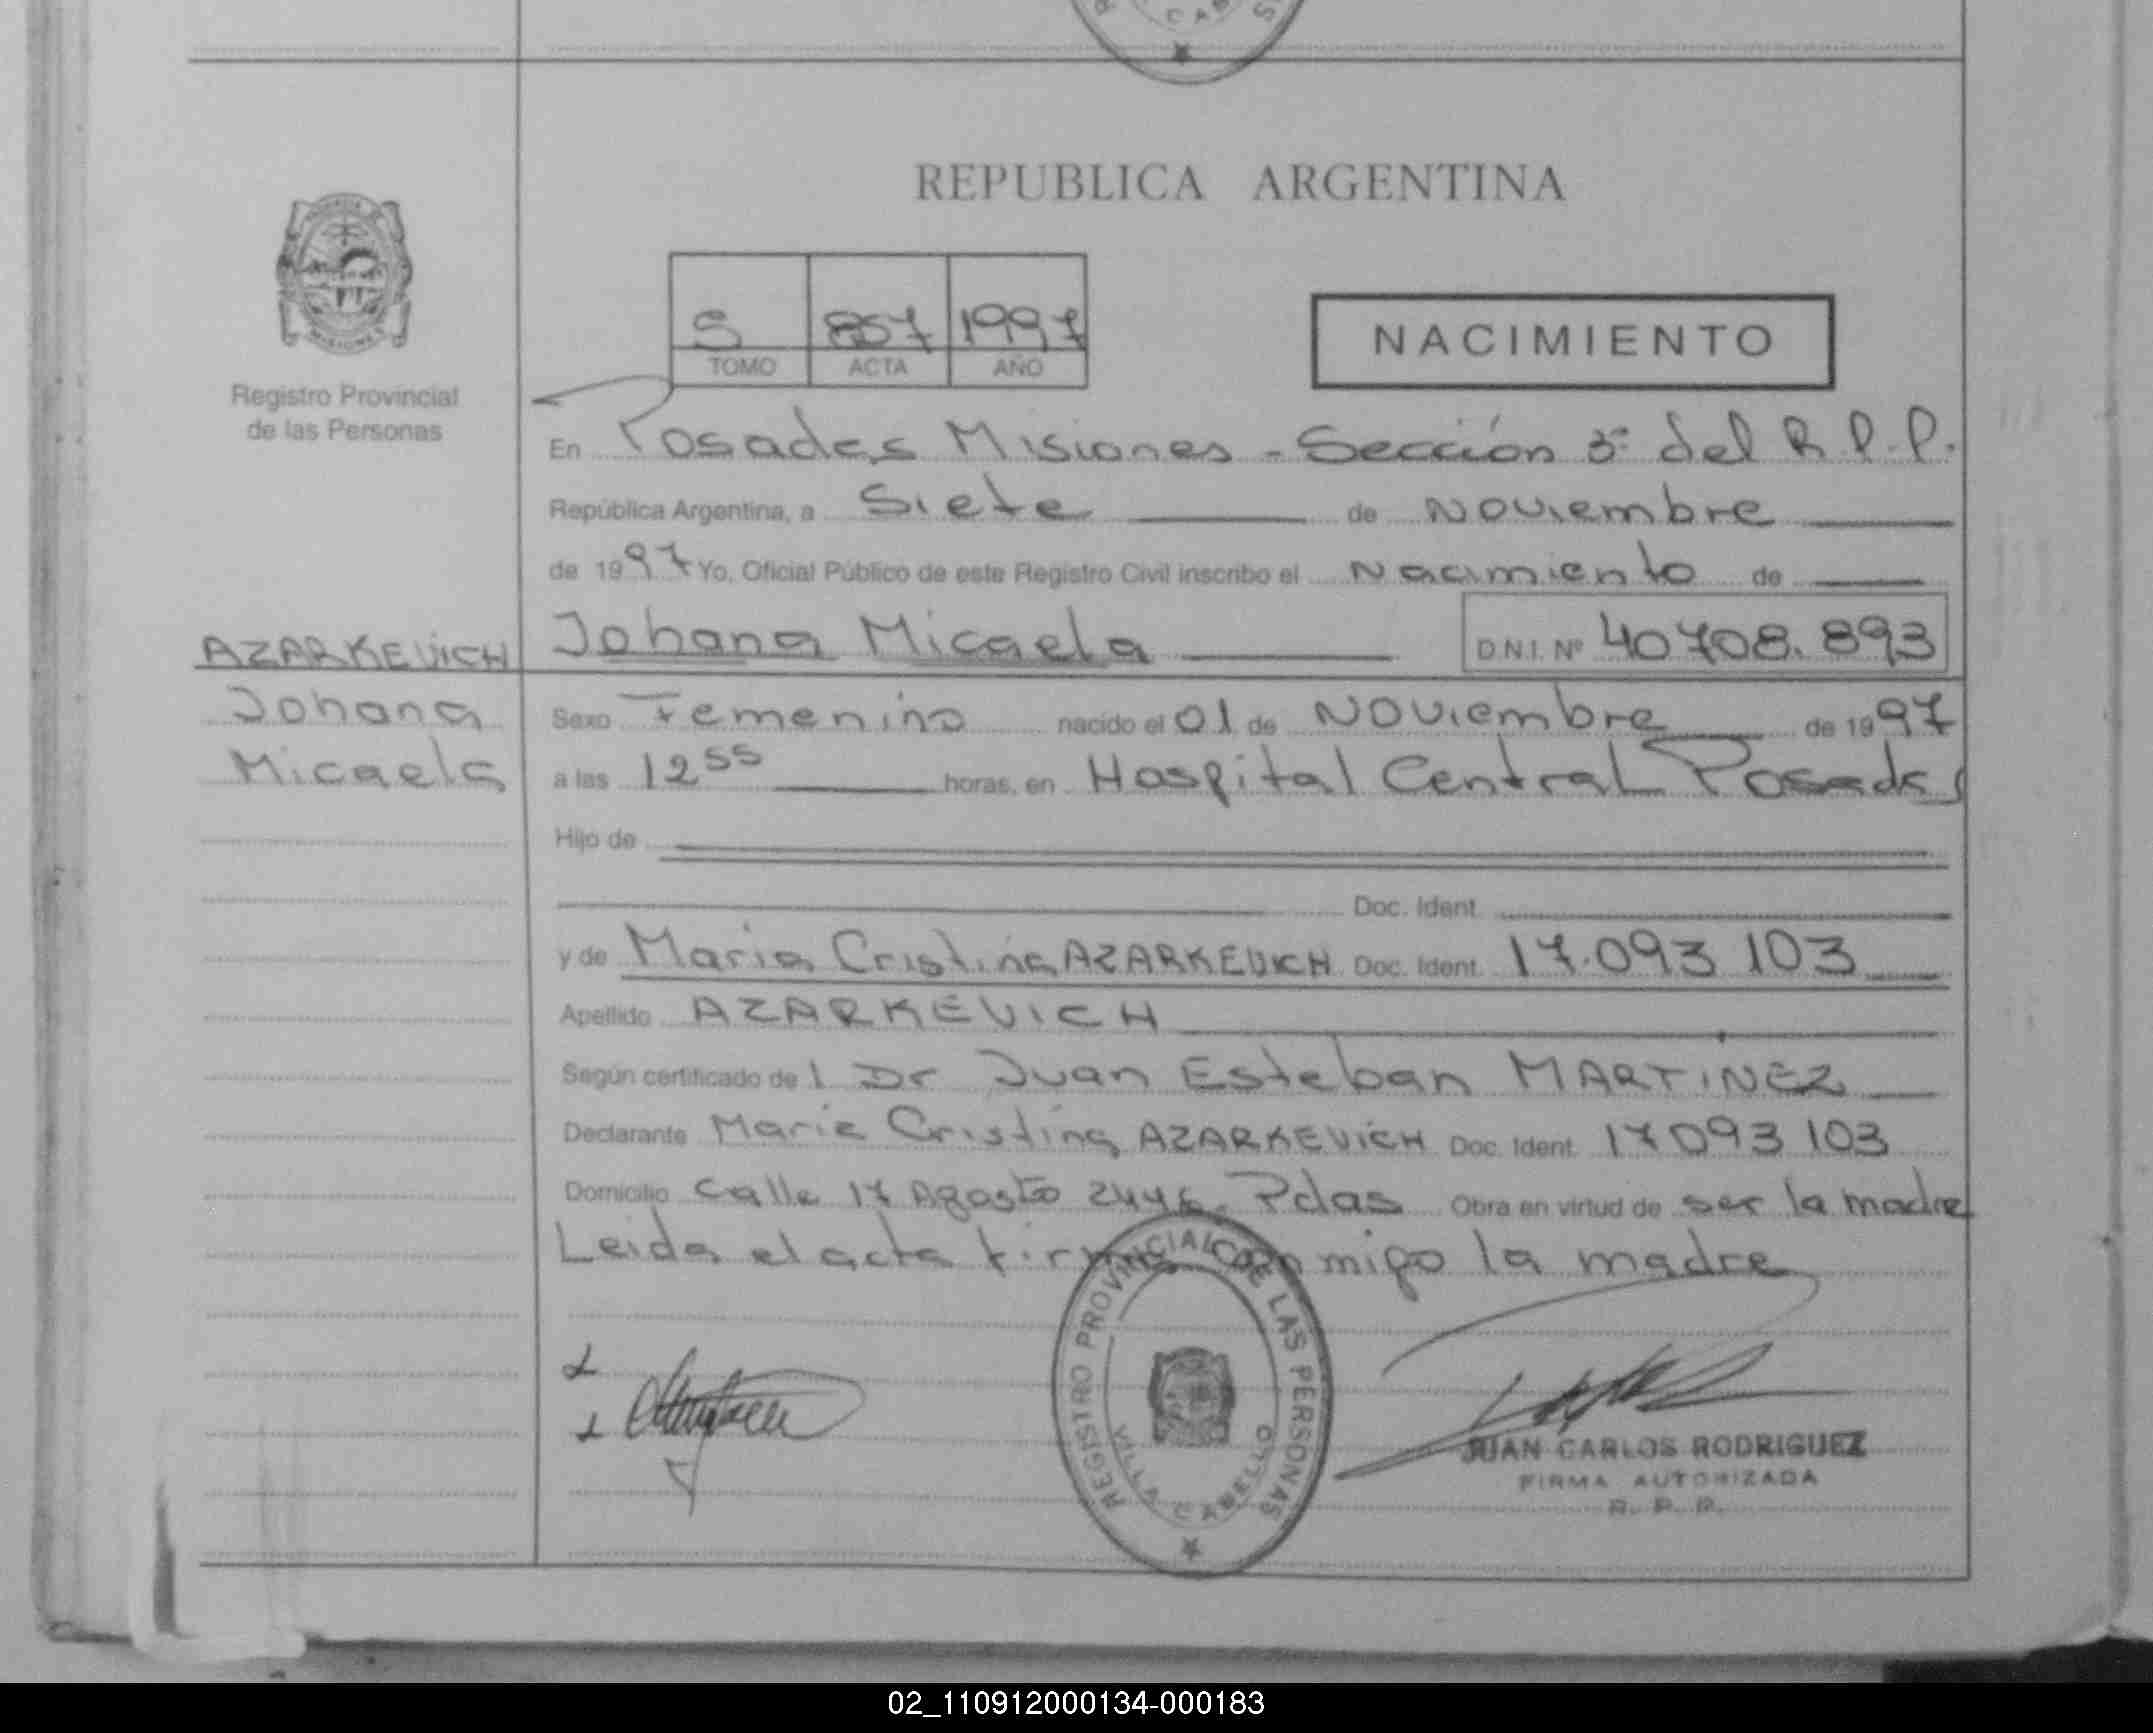 REPUBLICA ARGENTINA
S 857 1997
TOMO ACTA AÑO
NACIMIENTO
Registro Provincial
de las Personas
En Posadas Misiones - Sección 3ª del R.P.P.
República Argentina, a Siete de Noviembre
de 1997 Yo, Oficial Público de este Registro Civil inscribo el Nacimiento de
AZARKEVICH
Johana
Micaela
Johana Micaela D.N.I. Nº 40708.893
Sexo Femenino nacido el 01 de Noviembre de 1997
a las 12 55 horas, en Hospital Central Posadas
Hijo de
Doc. Ident.
y de Maria Cristina AZARKEVICH Doc. Ident. 17.093 103
Apellido AZARKEVICH
Según certificado de l Dr Juan Esteban MARTINEZ
Declarante Maria Cristina AZARKEVICH Doc. Ident. 17093 103
Domicilio Calle 17 Agosto 2446. Pdas Obra en virtud de ser la madre
Leida el acta firma conmigo la madre
REGISTRO PROVINCIAL DE LAS PERSONAS
VILLA CABELLO
JUAN CARLOS RODRIGUEZ
FIRMA AUTORIZADA
R. P. P.
02_110912000134-000183